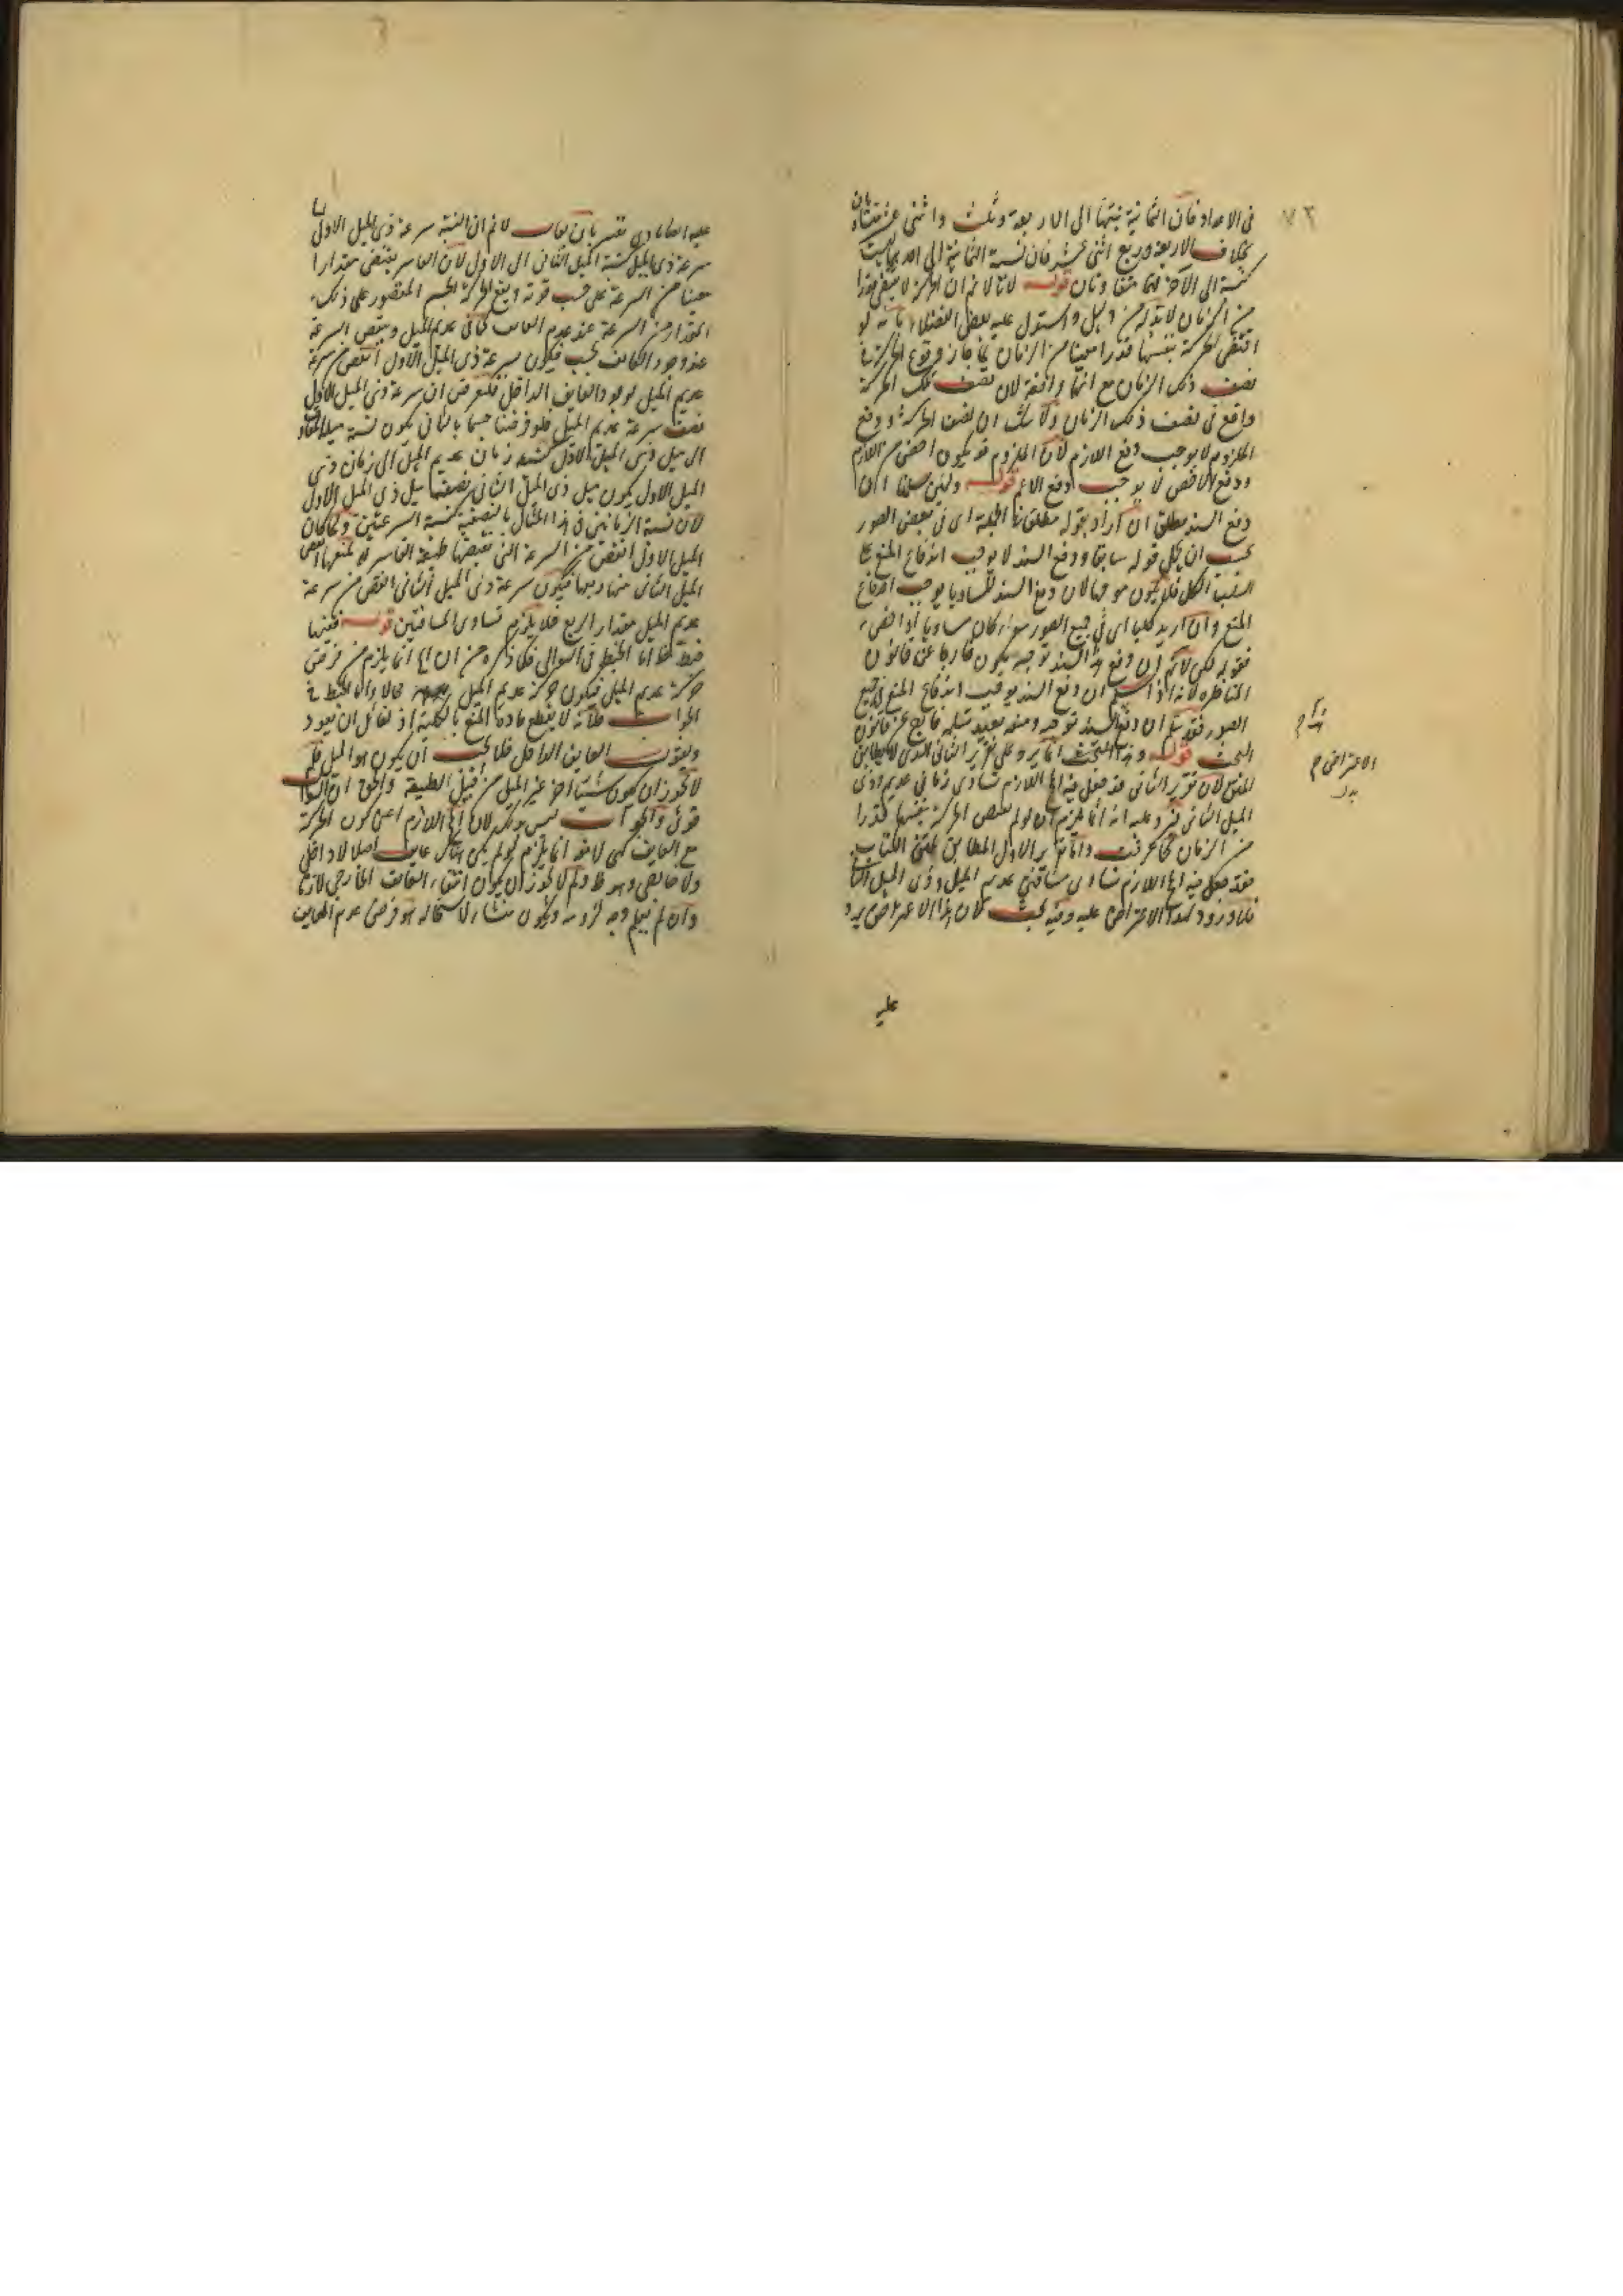 ٧٦
في الاعداد فان الثمانية نسبتها الى الاربعة وثلث واثنى عشر متساويان
بخلاف الاربعة وربع اثنى عشر فان نسبة الثمانية الى الاربعة ليست
كنسبة الى الآخر فهما متفاوتان قوله لانا لا نم ان الحركة لا تقتضي قدرا
من الزمان لابد له من دليل واستدل عليه بعض الفضلاء بانه لو
اقتضى الحركة بنفسها قدرا معينا من الزمان لما جاز وقوع الحركة في
نصف ذلك الزمان مع انها واقعة لان نصف تلك الحركة
واقع في نصف ذلك الزمان ولا شك ان نصف الحركة ودفع
الملزوم لا يوجب دفع اللازم لان الملزوم قد يكون اخص من اللازم
ودفع الاخص لا يوجب دفع الاعم قوله ولئن سلمنا ان
دفع السند مطلق ان اراد بقوله مطلق في الجملة اي في بعض الصور
يجب ان يحمل قوله سابقا ودفع السند لا يوجب اندفاع المنع على
السلب الكلي فلا يكون موجها لان دفع السند المساوي يوجب اندفاع
المنع وان اريد كليا اي في جميع الصور سواء كان مساويا او اخص
فقوله لكن لا نم ان دفع هذا السند توجيه يكون خارجا عن قانون
المناظرة لانه اذا سلم ان دفع السند يوجب اندفاع المنع في جميع
الصور فقد سلم ان دفع السند توجيه ومنعه بعد تسليمه خارج عن قانون
البحث قوله وهذا البحث انما يرد على تقرير الثاني الذي لا يطابق
المتن لان تقرير الثاني قد جعل فيه المح اللازم تساوي زماني عديم وذي
الميل الثاني فيرد عليه انه انما يلزم ان لو لم تقتض الحركة بنفسها قدرا
من الزمان كما عرفت واما تقرير الاول المطابق لمتن الكتاب
فقد جعل فيه المح اللازم تساوي مسافتي عديم الميل وذي الميل الثاني
فلا ورود لهذا الاعتراض عليه وفيه بحث لان هذا الاعتراض يرد
عليه
الاعتراض
عليه ايضا بادنى تغيير بان يقال لا نم ان نسبة سرعة ذي الميل الاول
سرعة ذي الميل كنسبة الميل الثاني الى الاول لان القاسر يقتضي مقدارا
معينا من السرعة على حسب قوته ويقع الحركة الجسم المقسور على ذلك
المقدار من السرعة عند عدم العائق كما في عديم الميل وينقص السرعة
عند وجود العائق بحسبه فيكون سرعة ذي الميل الاول انقص من سرعة
عديم الميل لوجود العايق الداخل فلنفرض ان سرعة ذي الميل الاول
نصف سرعة عديم الميل فلو فرضنا جسما ثانيا يكون نسبة ميله
الى ميل ذي الميل الاول كنسبة زمان عديم الميل الى زمان ذي
الميل الاول يكون ميل ذي الميل الثاني نصف ميل ذي الميل الاول
لان نسبة الزمانين في هذا المثال بالنصفية كنسبة السرعتين ولما كان
الميل الاول انقص من السرعة التي تقتضيها طبيعة القاسر نصفها
الميل الثاني منها ربعها فيكون سرعة ذي الميل الثاني انقص من سرعة
عديم الميل مقدار الربع فلا يلزم تساوي المسافتين قوله ففيها
خبط ظ اما الخبط في السؤال فلما ذكره من ان المح انما يلزم من فرض
حركة عديم الميل فيكون حركة عديم الميل محالا واما الخبط في
الجواب فلانه لا ينقطع مادة المنع بالكلية اذ لقائل ان يعود
ويقول العايق الداخل فلا يجب ان يكون هو الميل فلم
لا يجوز ان يكون شيئا آخر غير الميل من قبيل الطبيعة والحق ان السؤال
قوي والجواب ليس بذلك لان المح اللازم اعني كون الحركة
مع العايق كهي لا معه انما يلزم لو لم يكن هناك عايق اصلا لا داخلي
ولا خارجي وهو ظ ولم لا يجوز ان يكون انتفاء العايق الخارجي لازما
وان لم نعلم وجه لزومه ويكون منشاء الاستحالة هو فرض عدم العايق